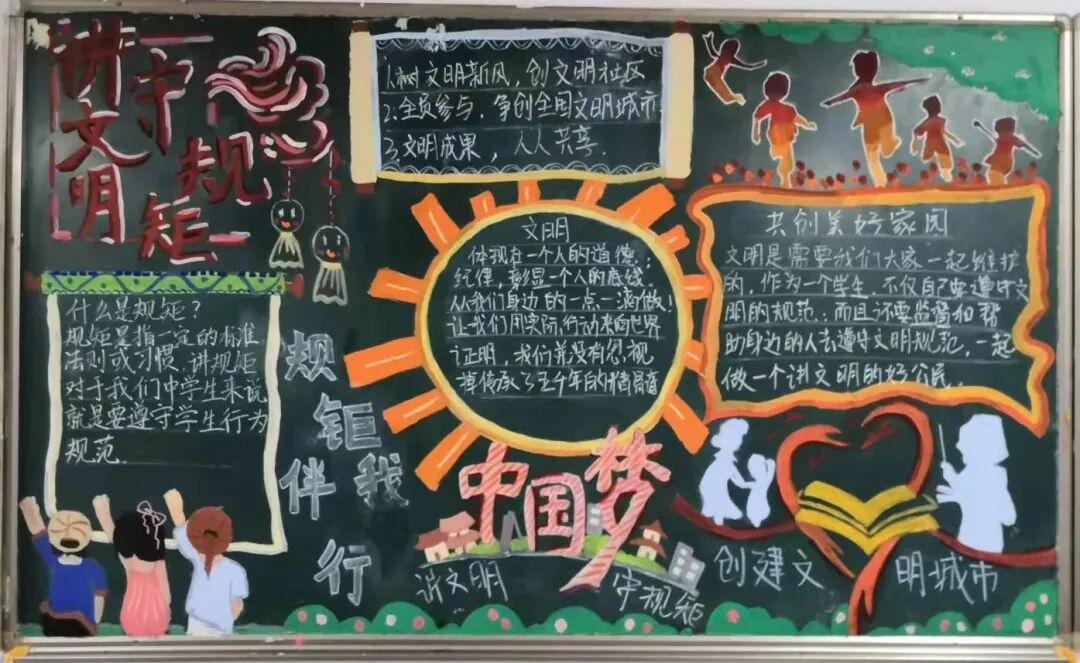 讲文明
守规矩
1.树文明新风，创文明社区
2.全员参与，争创全国文明城市
3.文明成果，人人共享
什么是规矩？
规矩是指一定的标准
法则或习惯，讲规矩
对于我们中学生来说
就是要遵守学生行为
规范
规矩伴我行
文明
体现在一个人的道德，
纪律，彰显一个人的底线
从我们身边的一点一滴做！
让我们用实际行动来向世界
证明，我们并没有忽视
掉传承了五千年的精髓
共创美好家园
文明是需要我们大家一起维护
的，作为一个学生，不仅自己要遵守文
明的规范，而且还要监督和帮
助身边的人去遵守文明规范，一起
做一个讲文明的好公民。
中国梦
讲文明
守规矩
创建文明城市